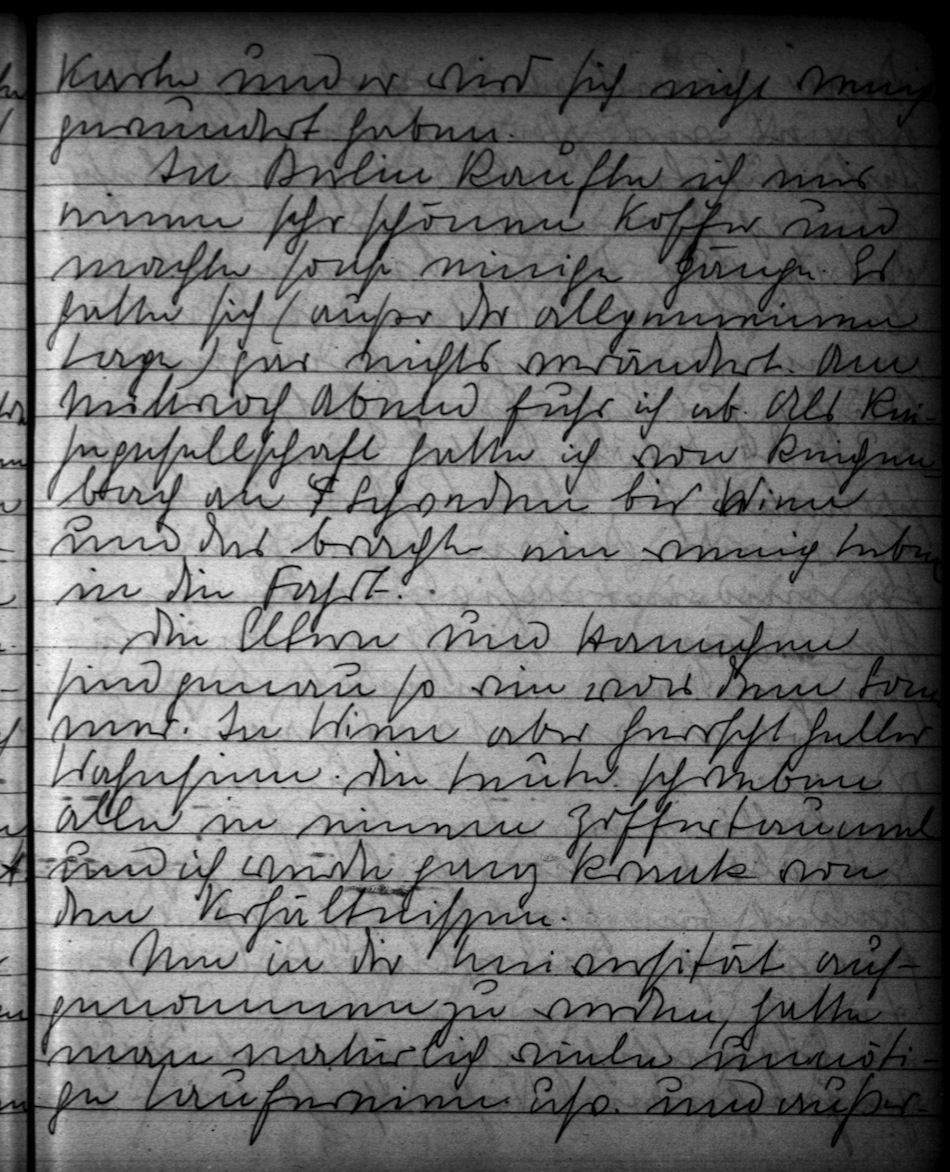 Karte und er wird sich nicht wenig
gewundert haben.
In Berlin kaufte ich mir
einen sehr schönen Koffer und
machte sonst einige Gänge. Es
hatte sich (außer der allgemeinen
Lage) gar nichts verändert. Am
Mittwoch Abend fuhr ich ab. Als Rei-
segesellschaft hatte ich von Reichen-
bach an 4 Schweden bis Wien
und das brachte ein wenig Leben
in die Fahrt.
Die Eltern und Hannchen
sind genau so wie vor dem Som
mer. In Wien aber herrscht heller
Wahnsinn. Die Leute schweben
alle in einem Zifferntaumel
und ich wurde ganz krank von
den Verhältnissen.
Um in die Universität auf-
genommen zu werden, hatte
man natürlich viele unnöti-
ge Laufereien usw. und außer-